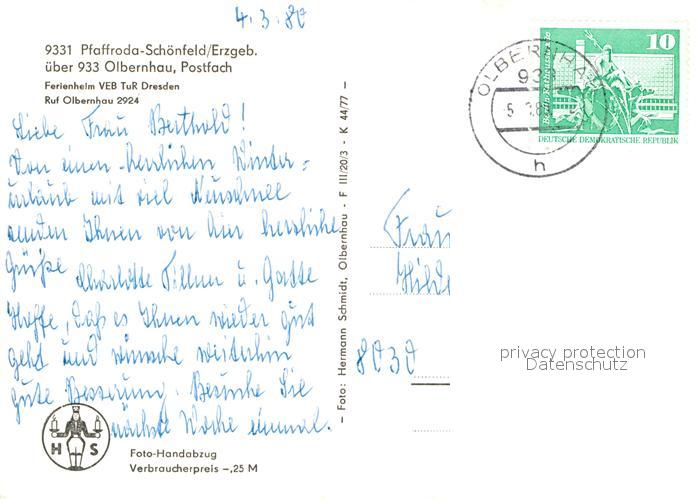 4.3.80
9331 Pfaffroda-Schönfeld/Erzgeb.
über 933 Olbernhau, Postfach
Ferienheim VEB TuR Dresden
Ruf Olbernhau 2924
Liebe Frau Berthold!
Von einem herrlichen Winter=
urlaub mit viel Neuschnee
senden Ihnen von hier herzliche
Grüße Charlotte u. Gatte
Hoffe, daß es Ihnen wieder gut
geht und wünsche weiterhin
gute Besserung. Besuche Sie
nächste Woche einmal.
H S
Foto-Handabzug
Verbraucherpreis -,25 M
- Foto: Hermann Schmidt, Olbernhau - F III/20/3 - K 44/77 -
10
DEUTSCHE DEMOKRATISCHE REPUBLIK
OLBERNHAU
933
h
Frau
8030
privacy protection
Datenschutz